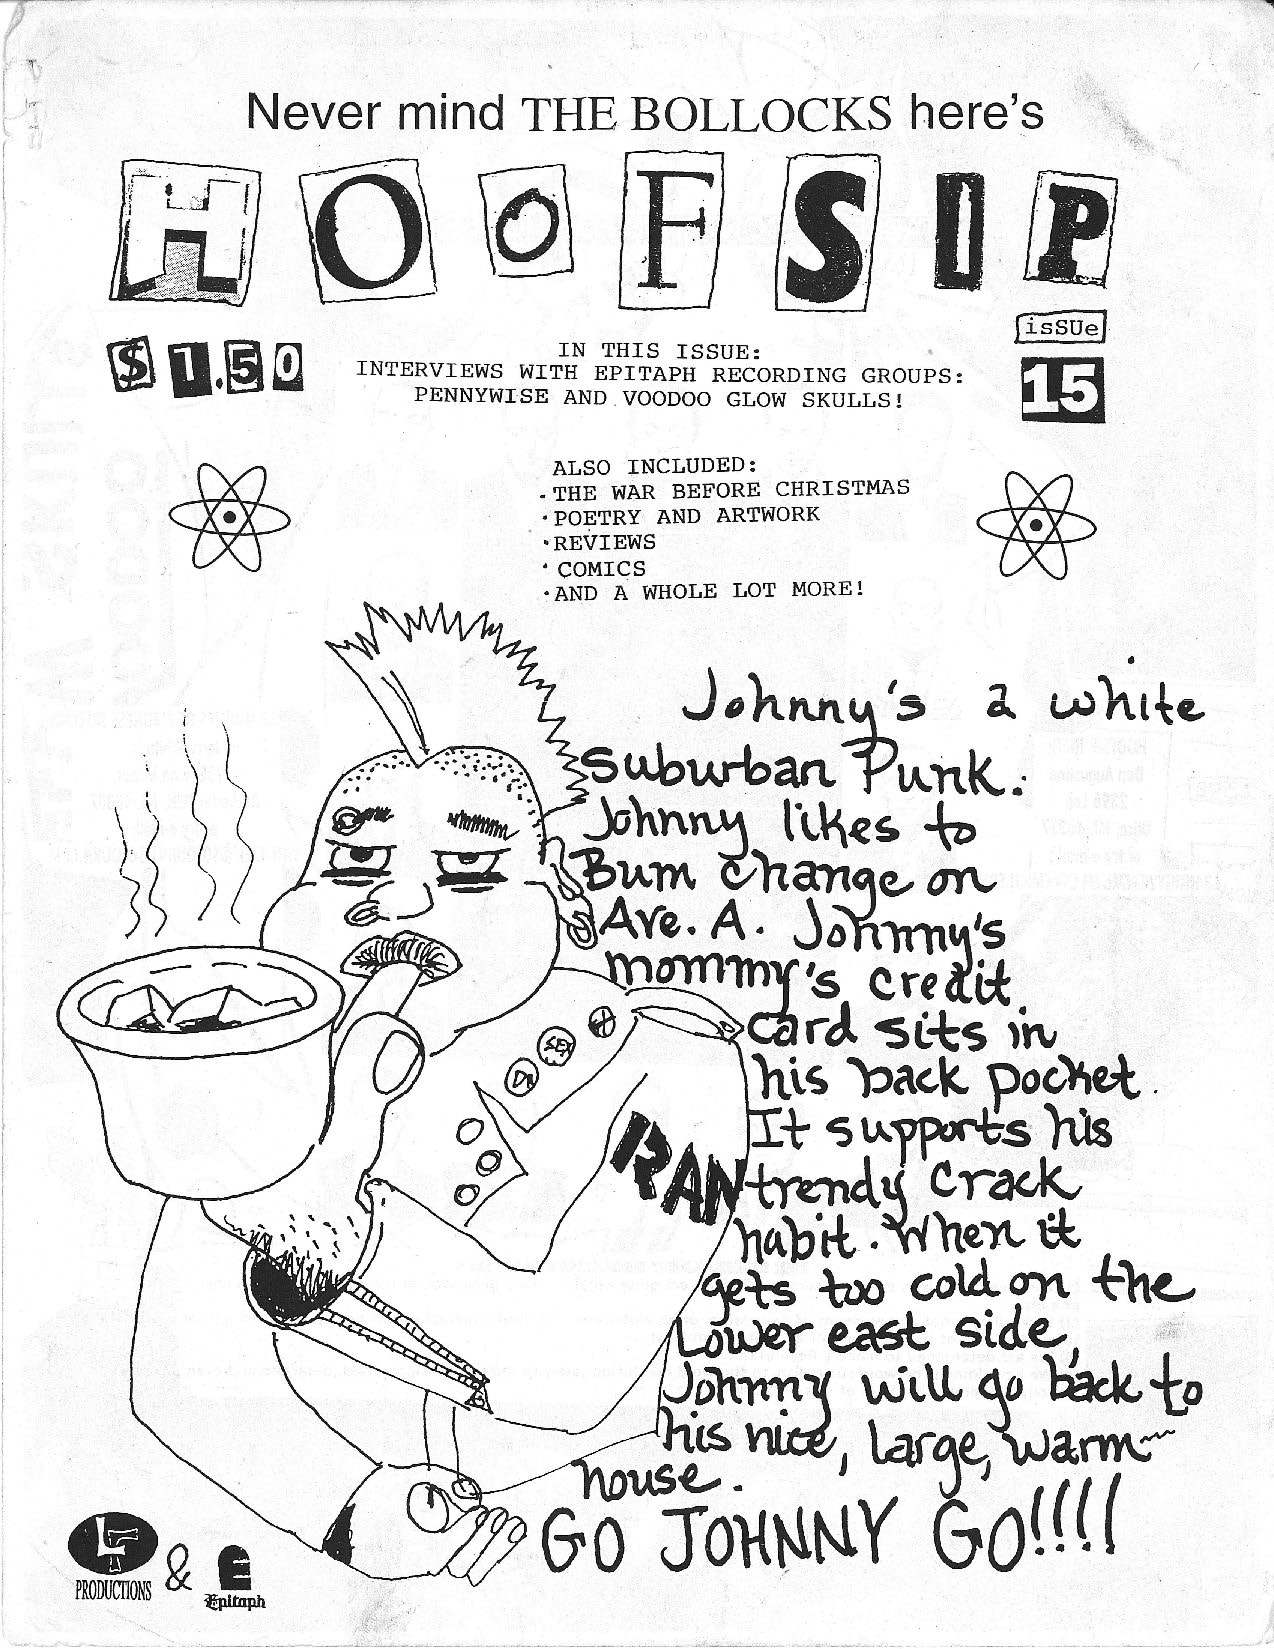 Never mind THE BOLLOCKS here's
HOoFSIP
$1.50
isSUe
15
IN THIS ISSUE:
INTERVIEWS WITH EPITAPH RECORDING GROUPS:
PENNYWISE AND VOODOO GLOW SKULLS!
ALSO INCLUDED:
·THE WAR BEFORE CHRISTMAS
·POETRY AND ARTWORK
·REVIEWS
·COMICS
·AND A WHOLE LOT MORE!
Johnny's a white
Suburban Punk.
Johnny likes to
Bum change on
Ave. A. Johnny's
mommy's credit
card sits in
his back pocket.
It supports his
trendy Crack
habit. When it
gets too cold on the
Lower east side,
Johnny will go back to
his nice, large, warm
house.
GO JOHNNY GO!!!!
SEX
RAN
LF
PRODUCTIONS
&
E
Epitaph